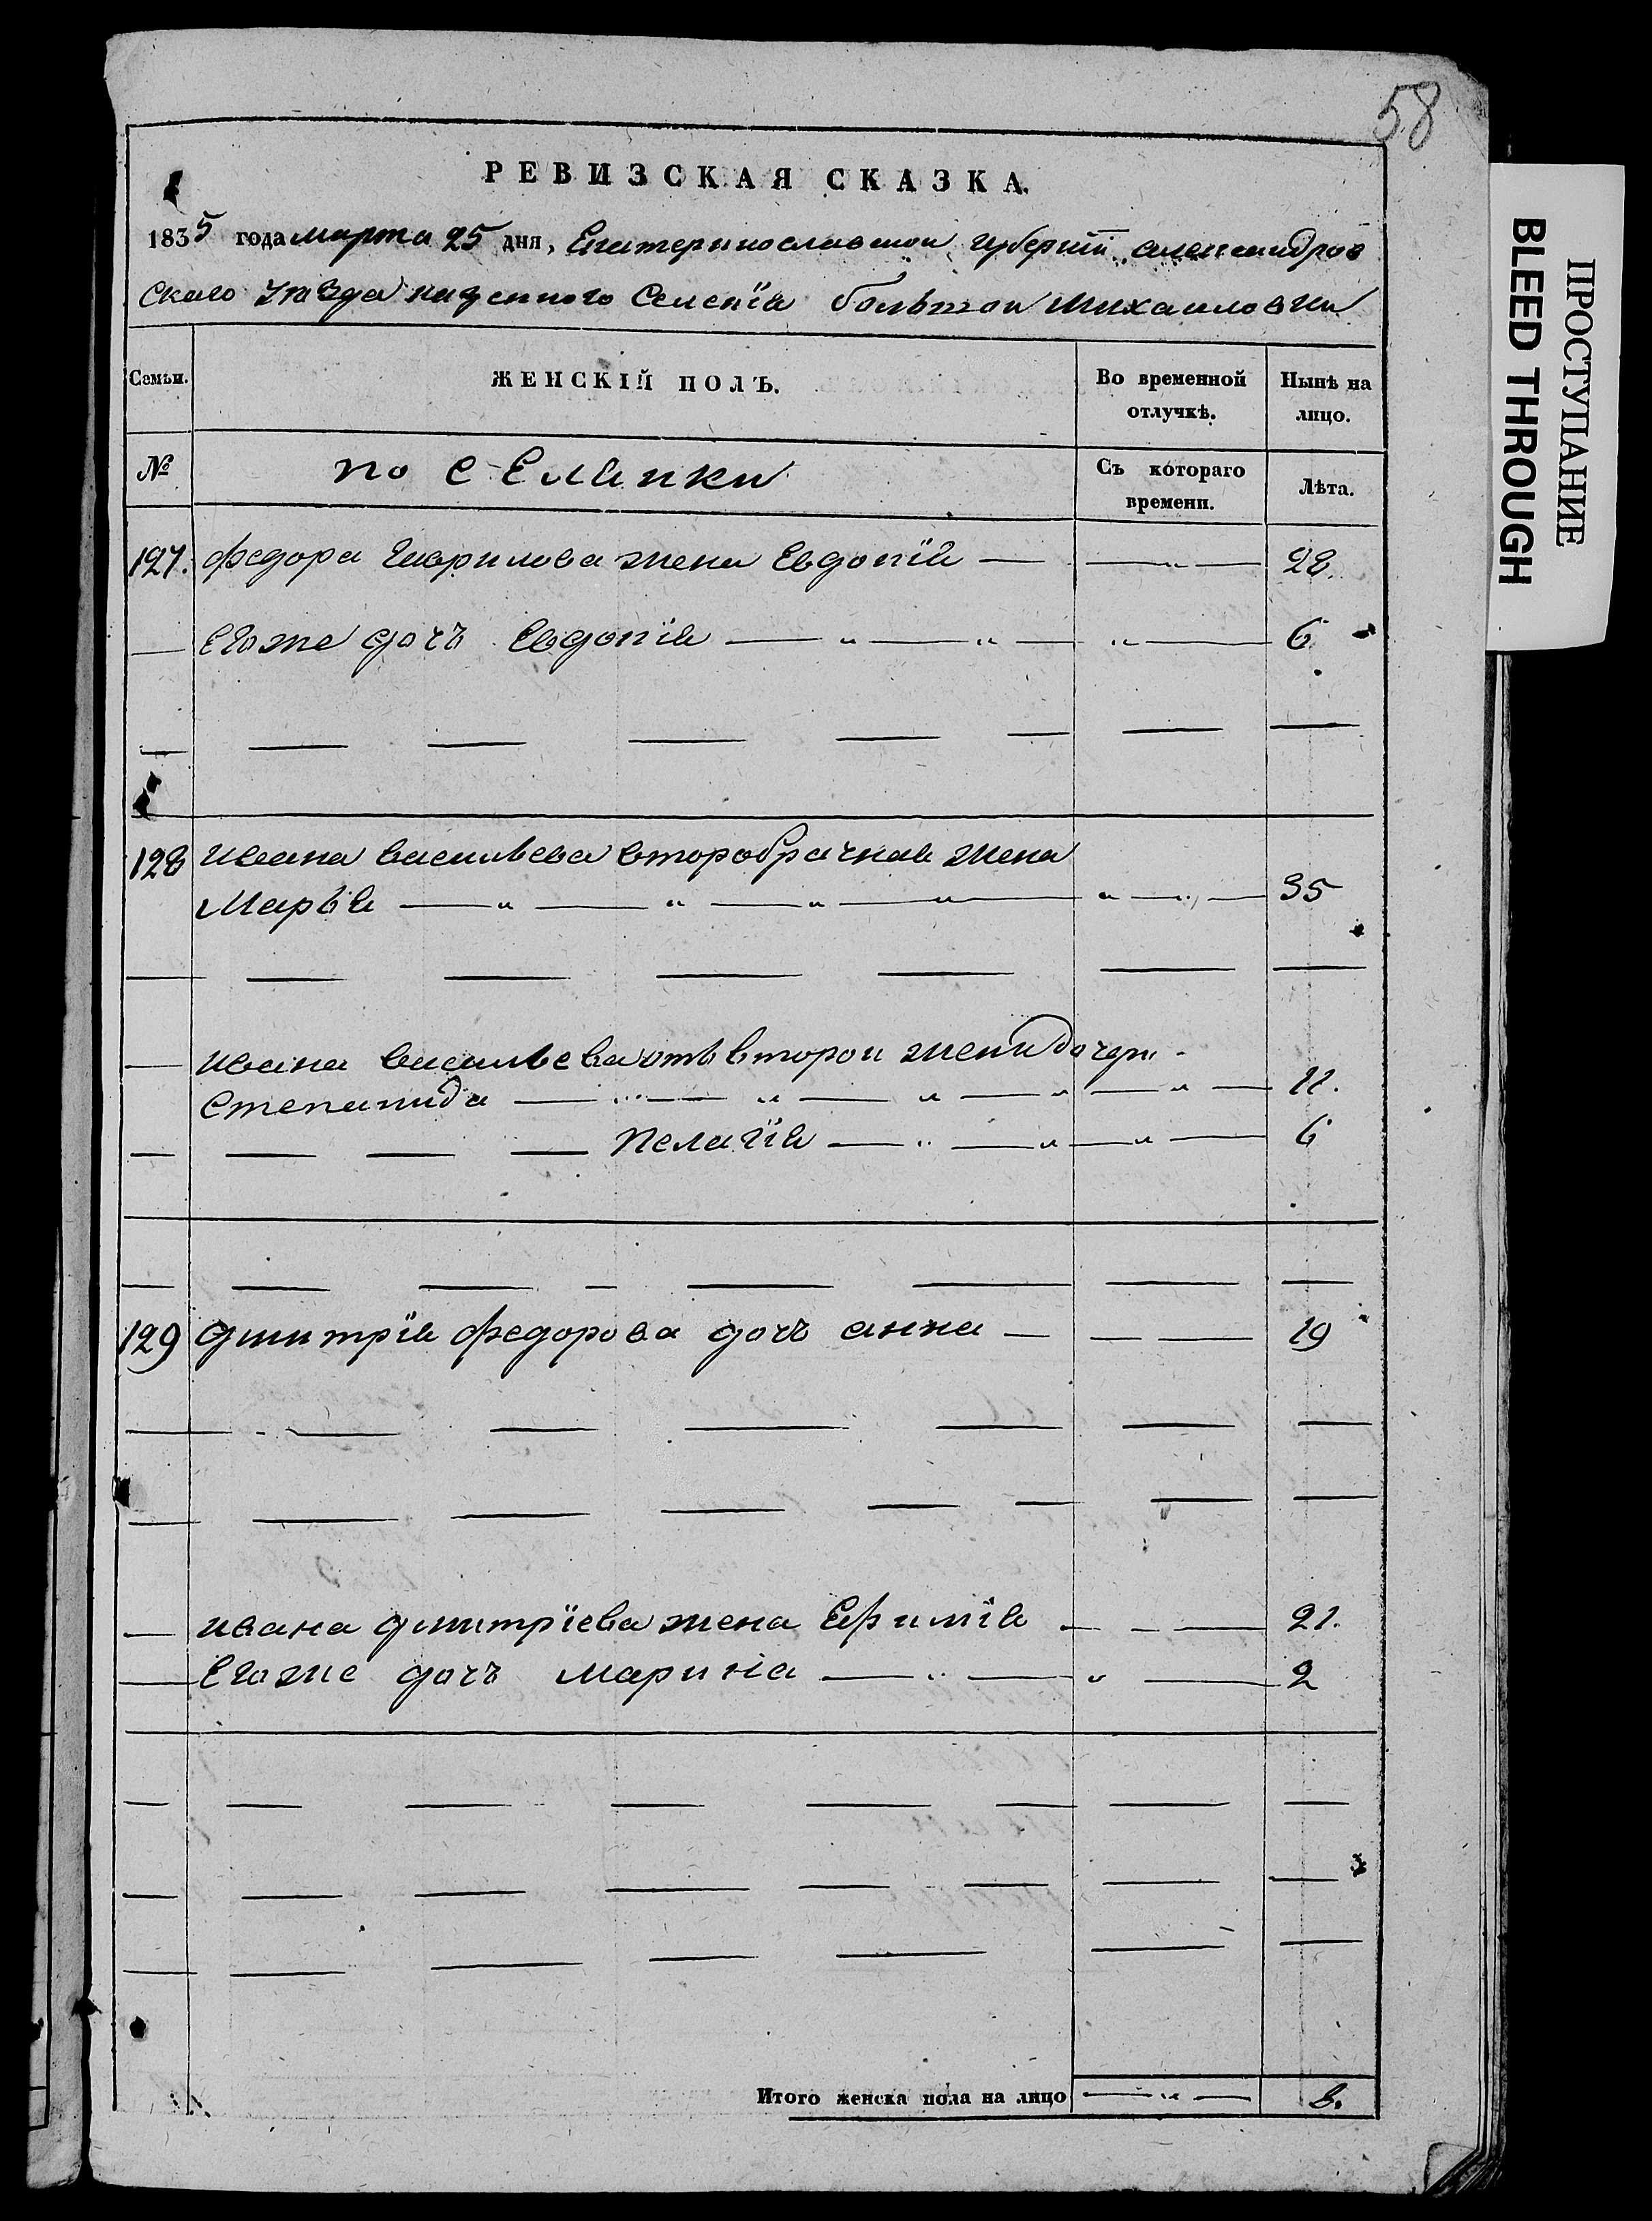 58
РЕВИЗСКАЯ СКАЗКА.
1835 года марта 25 дня, Екатеринославской губерніи александров
Скаго уѣзда казенного Селенія большой михаиловки
Семьи. ЖЕНСКІЙ ПОЛЪ. Во временной отлучкѣ. Нынѣ на лицо.
№ поселянки Съ котораго времени. Лѣта.
127. федора Гаврилова жена Евдокія — — „ — 28.
— Егоже дочь Евдокія — „ — „ — „ — 6
128 ивана васильева второбрачная жена
Марья — „ — „ — „ — „ — „ — „ — 35
— ивана васильева отъ второй жены дочери
степанида — „ — „ — „ — „ — „ — 11.
— — — — Пелагія — „ — „ — „ — 6
129 дмитрія федорова дочь анна — — — 19
— ивана дмитріева жена Ефимія — — — 21.
— Егоже дочь марина — „ — „ — 2
Итого женска пола на лицо — „ — 8.
ПРОСТУПАНИЕ
BLEED THROUGH